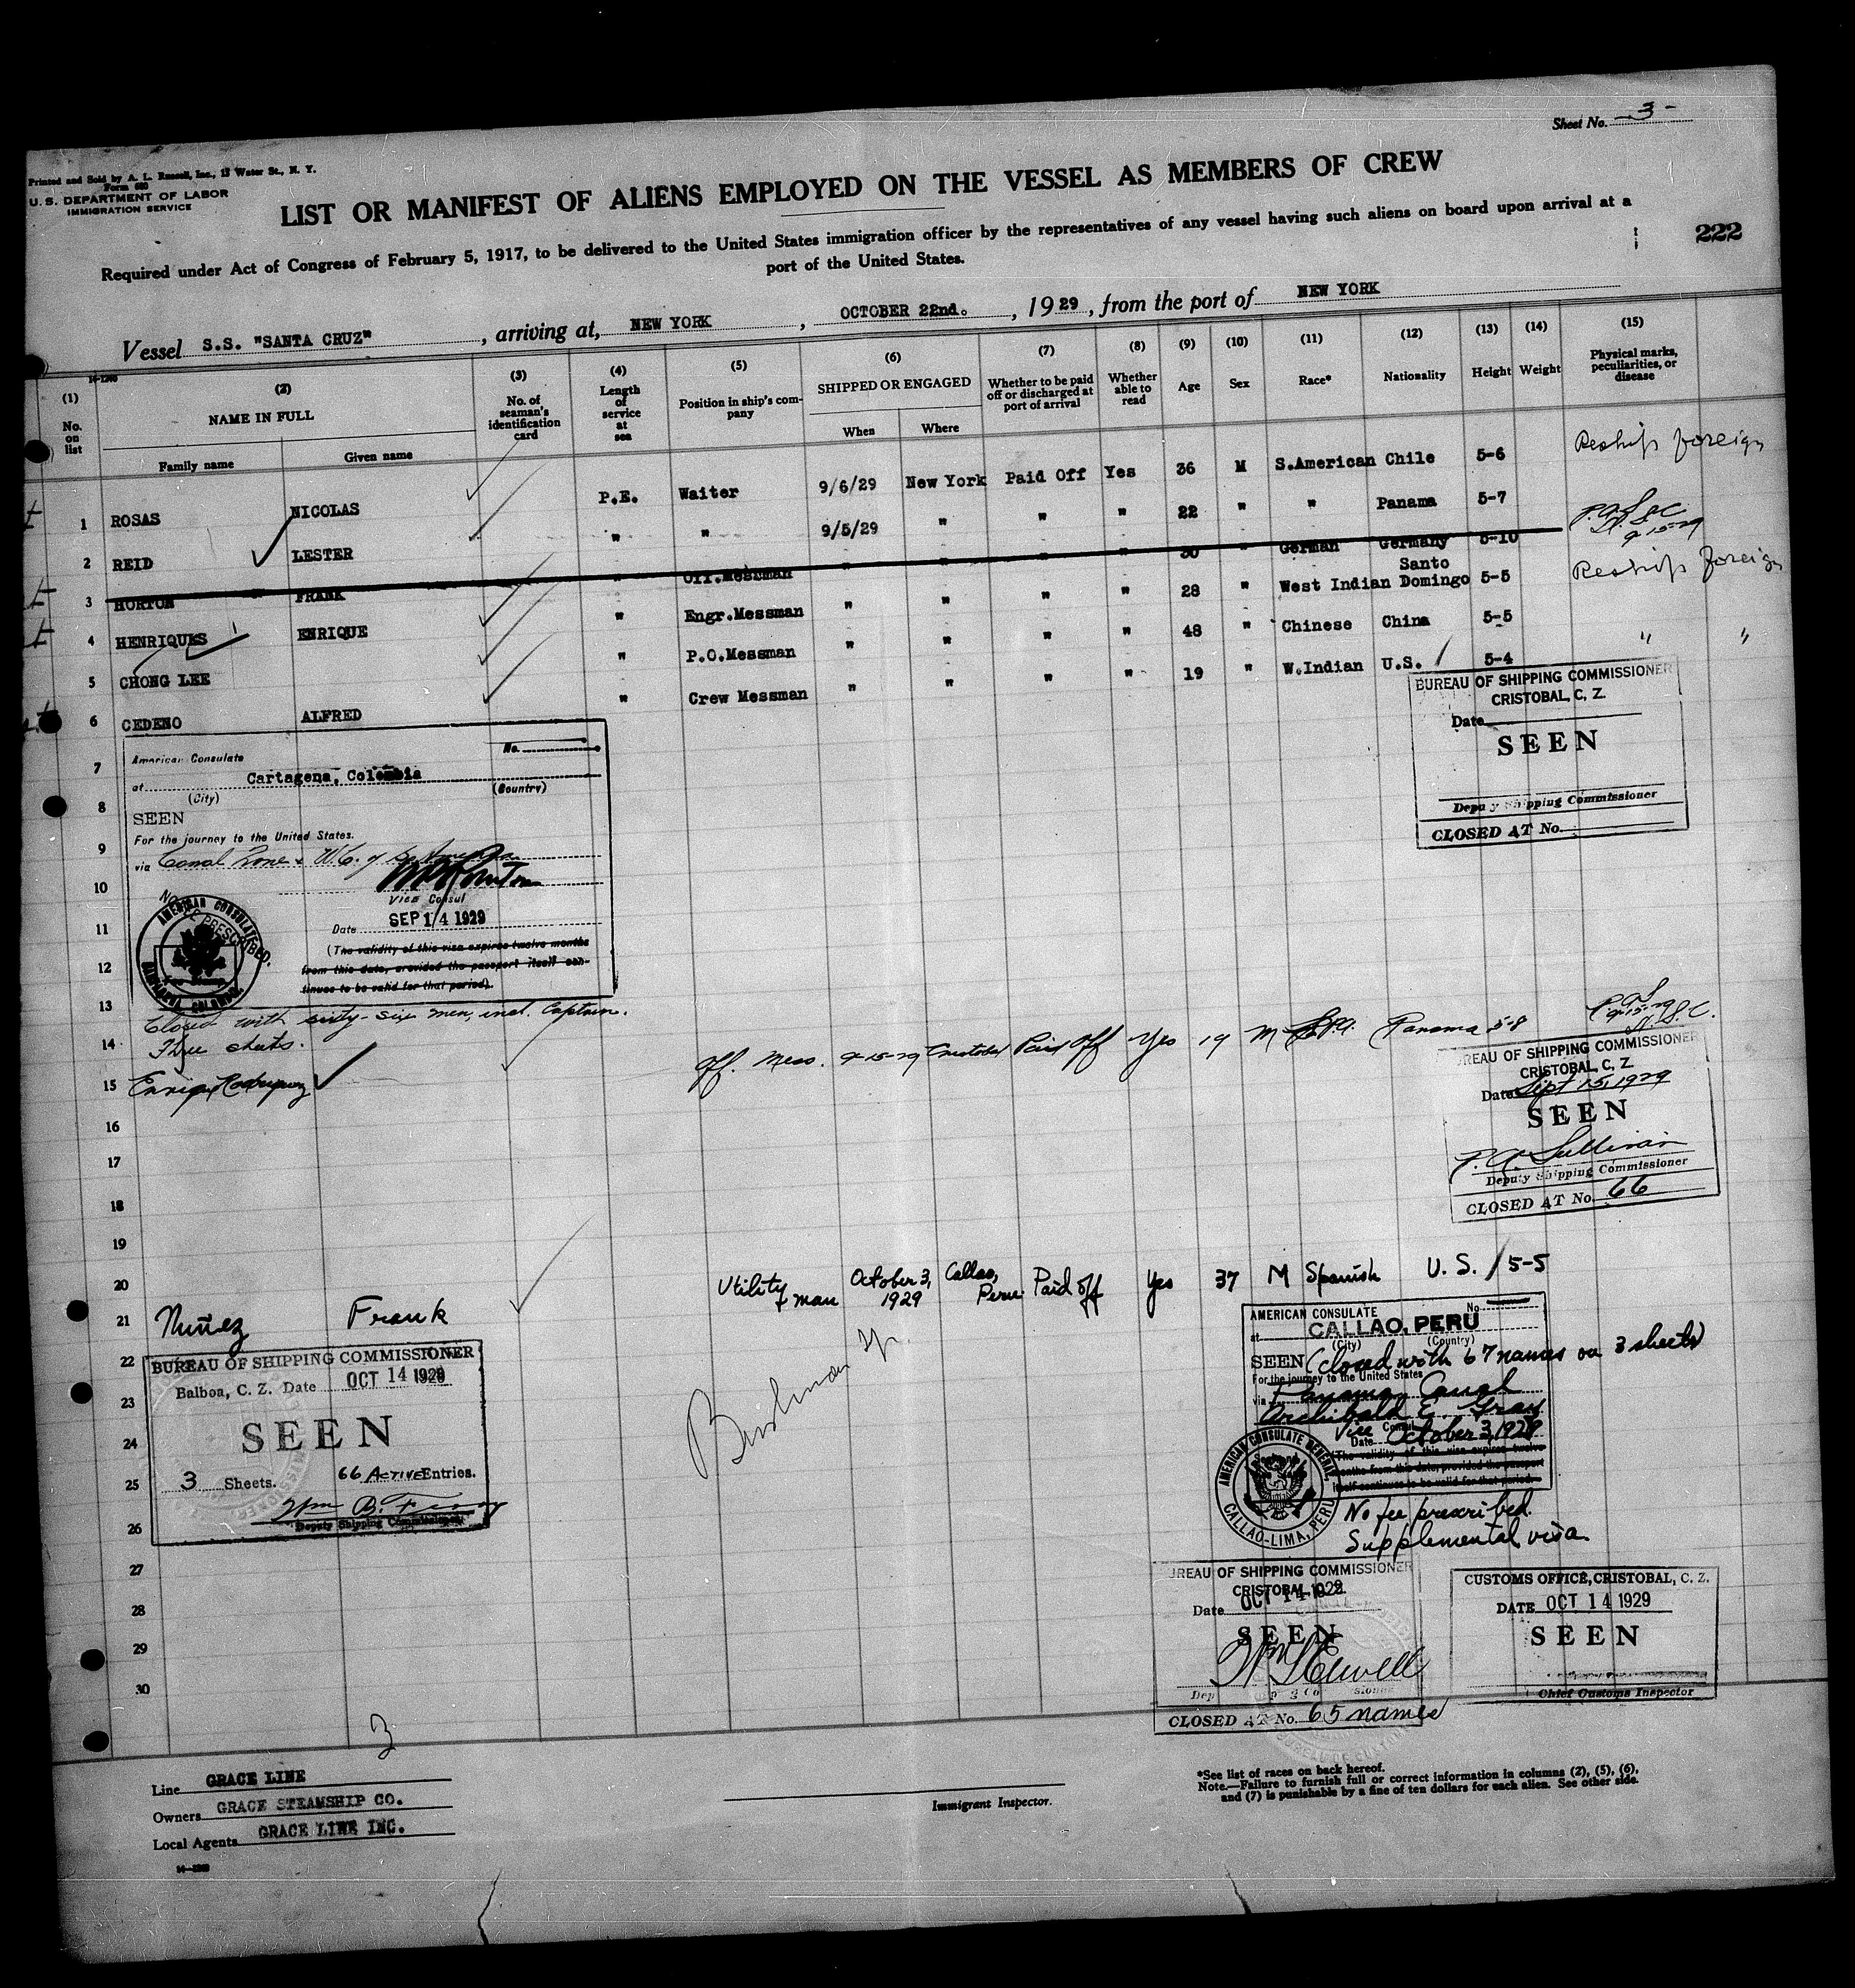 Sheet No. 3 -
Printed and Sold by A. L. Russell, Inc., 13 Water St., N. Y.
Form 680
U. S. DEPARTMENT OF LABOR
IMMIGRATION SERVICE
LIST OR MANIFEST OF ALIENS EMPLOYED ON THE VESSEL AS MEMBERS OF CREW
222
Required under Act of Congress of February 5, 1917, to be delivered to the United States immigration officer by the representatives of any vessel having such aliens on board upon arrival at a
port of the United States.
Vessel S.S. "SANTA CRUZ" , arriving at, NEW YORK , OCTOBER 22nd. , 1929 , from the port of NEW YORK
(1) (2) (3) (4) (5) (6) (7) (8) (9) (10) (11) (12) (13) (14) (15)
No. on list
NAME IN FULL
Family name Given name
No. of seaman's identification card
Length of service at sea
Position in ship's company
SHIPPED OR ENGAGED
When Where
Whether to be paid off or discharged at port of arrival
Whether able to read
Age
Sex
Race*
Nationality
Height
Weight
Physical marks, peculiarities, or disease
1 ROSAS NICOLAS P.E. Waiter 9/6/29 New York Paid Off Yes 36 M S.American Chile 5-6 Reship foreign
2 REID LESTER " " 9/5/29 " " " 22 " " Panama 5-7
3 HORTON FRANK " Off.Messman " " " " 30 " German Germany 5-10 9-15-29
4 HENRIQUES ENRIQUE " Engr.Messman " " " " 28 " West Indian Santo Domingo 5-5 Reship foreign
5 CHONG LEE " P.O.Messman " " " " 48 " Chinese China 5-5 " "
6 CEDENO ALFRED " Crew Messman " " " " 19 " W.Indian U.S. 5-4
BUREAU OF SHIPPING COMMISSIONER
CRISTOBAL, C. Z.
Date
SEEN
Deputy Shipping Commissioner
CLOSED AT No.
7
8
9
10
11
12
13
American Consulate No.
at Cartagena, Colombia
(City) (Country)
SEEN
For the journey to the United States.
via Canal Zone & W.C. of So. America
Vice Consul
Date SEP 14 1929
(The validity of this visa expires twelve months
from this date, provided the passport itself con-
tinues to be valid for that period).
NO FEE PRESCRIBED.
AMERICAN CONSULATE
CARTAGENA, COLOMBIA
Closed with sixty-six men, incl. Captain.
14 Three sheets.
15 Enrique Rodriguez Off. Mess. 9-15-29 Cristobal Paid Off Yes 19 M Panama 5-8
BUREAU OF SHIPPING COMMISSIONER
CRISTOBAL, C. Z.
Date Sept 15, 1929
SEEN
P. A. Sullivan
Deputy Shipping Commissioner
CLOSED AT No. 66
16
17
18
19
20
21 Nuñez Frank Utility man October 3, 1929 Callao, Peru Paid off Yes 37 M Spanish U. S. 5-5
22
23
24
25
26
27
28
29
30
BUREAU OF SHIPPING COMMISSIONER
Balboa, C. Z. Date OCT 14 1929
SEEN
3 Sheets. 66 ACTIVE Entries.
Deputy Shipping Commissioner
AMERICAN CONSULATE No
at CALLAO, PERU
(City) (Country)
SEEN (closed with 67 names on 3 sheets)
For the journey to the United States
via Panama Canal
Archibald E. Gray
Vice Consul
Date October 3, 1929
(The validity of this visa expires twelve
months from this date, provided the passport
itself continues to be valid for that period.
AMERICAN CONSULATE GENERAL
CALLAO-LIMA, PERU
No fee prescribed.
Supplemental visa
BUREAU OF SHIPPING COMMISSIONER
CRISTOBAL
Date OCT 14 1929
SEEN
CLOSED AT No. 65 names
CUSTOMS OFFICE, CRISTOBAL, C. Z.
DATE OCT 14 1929
SEEN
Chief Customs Inspector
3
Line GRACE LINE
Owners GRACE STEAMSHIP CO.
Local Agents GRACE LINE INC.
Immigrant Inspector.
*See list of races on back hereof.
Note.—Failure to furnish full or correct information in columns (2), (5), (6),
and (7) is punishable by a fine of ten dollars for each alien. See other side.